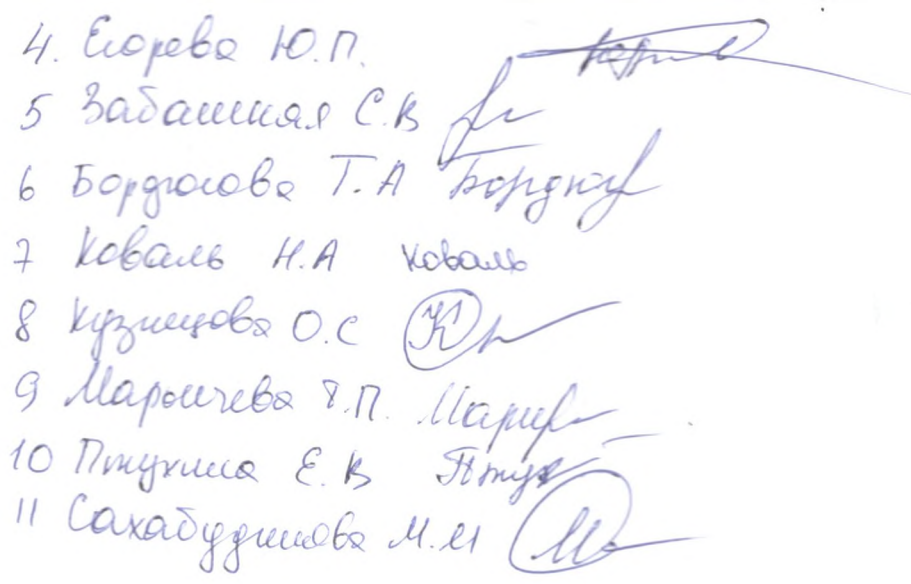 4. Егорева Ю.П.
5 Забашная С.В
6 Бордюгова Т.А Бордюг
7 Коваль Н.А Коваль
8 Кузнецова О.С
9 Марычева Т.П.
10 Птухина Е.В Птух
11 Сахабудинова М.М